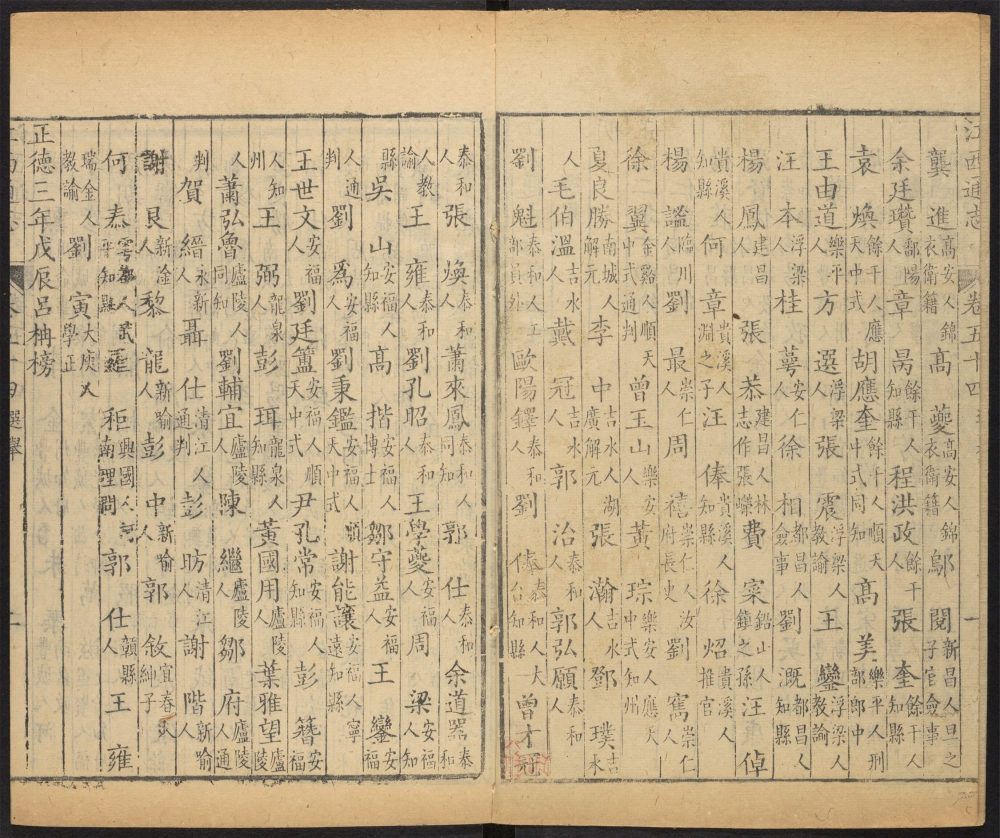 江西通志 卷五十四 一
龔進高安人錦衣衛籍 高夔高安人錦衣衛籍 鄔閱新昌人旦之子官僉事
余廷瓚鄱陽人 章昺餘干人知縣 程洪政餘干人 張奎餘干人知縣
袁煥餘干人應天中式 胡應奎餘干人順天中式同知 高美樂平人刑部郎中
王由道樂平人 方選浮梁人 張震浮梁人教諭 王鑾浮梁人教諭
汪本浮梁人 桂萼安仁人 徐相都昌人僉事 劉溉都昌人知縣
楊鳳建昌人 張恭建昌人林志作張嶸 費寀鉛山人之孫 汪倬
貴溪人知縣 何章貴溪人淵之子 汪俸貴溪人知縣 徐炤貴溪人推官
楊謐臨川人 劉最崇仁人 周德崇仁人汝府長史 劉寯崇仁人
徐翼金谿人順天中式通判 曾玉山樂安人 黃琮樂安人應天中式知州
夏良勝南城人解元 李中吉水人湖廣解元 張瀚吉水人 鄧璞吉水
人 毛伯溫吉水人 戴冠吉水人 郭治泰和人 郭弘願泰和人
劉魁泰和人工部員外 歐陽鐸泰和人 劉泰和人 曾才冠
泰和人 張煥泰和人 蕭來鳳泰和人同知 郭仕泰和人 余道器泰和
人教諭 王雍泰和人 劉孔昭泰和人 王學夔安福人 周梁安福人知
縣 吳山安福人知縣 高揩安福人博士 鄒守益安福人 王鑾安福
人通判 劉為安福人 劉秉鑑安福人順天中式 謝能讓安福人寧遠知縣
王世文安福人 劉廷簠安福人順天中式 尹孔常安福人知縣 彭簪安福
人知州 王弼龍泉人 彭珥龍泉人知縣 黃國用廬陵人 葉雅望廬陵
人 蕭弘魯廬陵人同知 劉輔宜廬陵人 陳繼廬陵人 鄒府廬陵人通
判 賀縉永新人 聶仕清江人通判 彭昉清江人 謝階新喻人
謝艮新淦人 黎龍新喻人 彭中新喻人 郭敘宜春人紳子
何泰雩都人知縣 秬興國人理問 郭仕贛縣人 王雍
瑞金人教諭 劉寅大庾人學正
正德三年戊辰呂柟榜
卷五十四 選舉